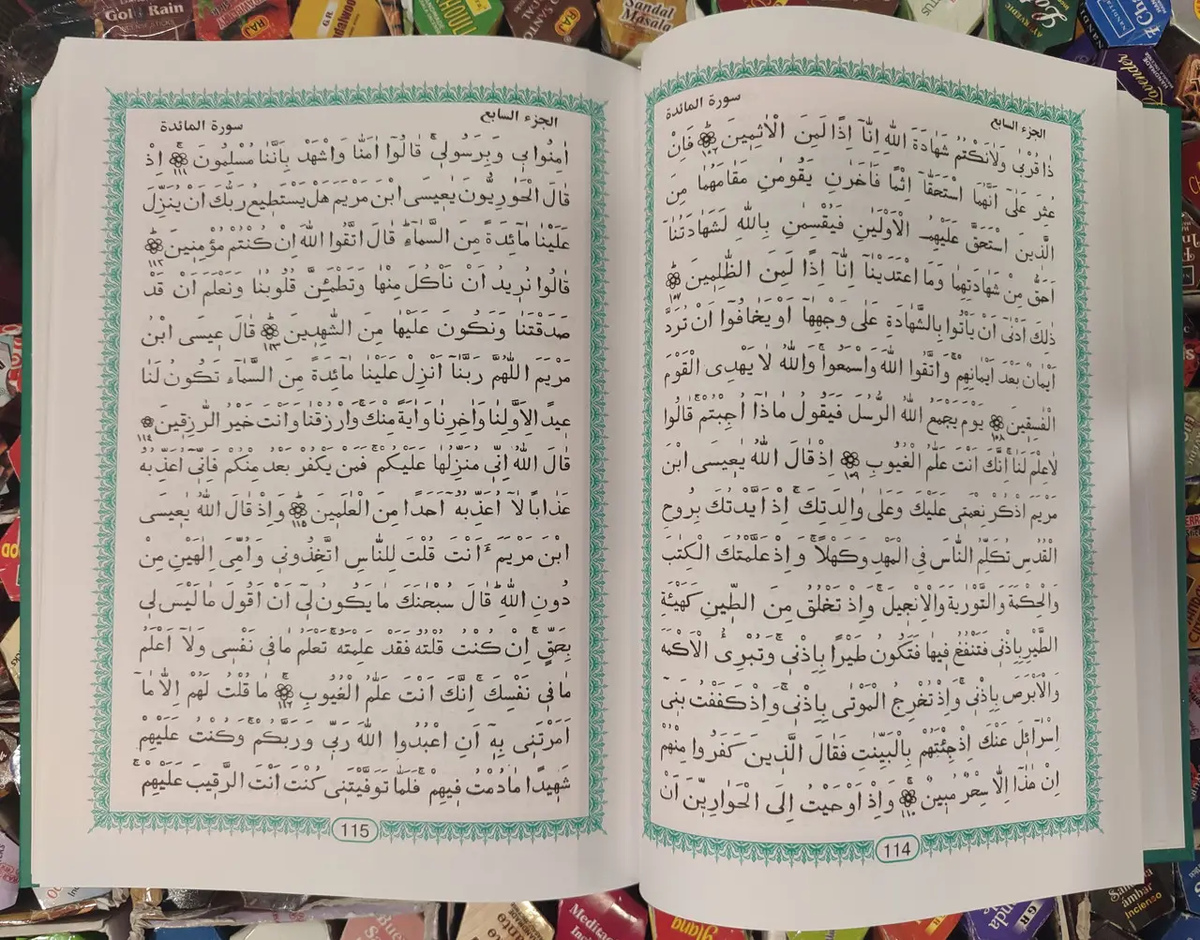 Gold Rain
RAJ
G.R.
RAJ
Sandal
Masala
Lavender
الجزء السابع
سورة المائدة
ذَا قُرْبٰى وَلَانَكْتُمُ شَهَادَةَ اللهِ اِنَّآ اِذًا لَمِنَ الْاٰثِمِينَ ١٠٦ فَاِنْ
عُثِرَ عَلٰىٓ اَنَّهُمَا اسْتَحَقَّآ اِثْمًا فَاٰخَرٰنِ يَقُومٰنِ مَقَامَهُمَا مِنَ
الَّذِينَ اسْتَحَقَّ عَلَيْهِمُ الْاَوْلَيٰنِ فَيُقْسِمٰنِ بِاللهِ لَشَهَادَتُنَآ
اَحَقُّ مِنْ شَهَادَتِهِمَا وَمَا اعْتَدَيْنَآ اِنَّآ اِذًا لَمِنَ الظّٰلِمِينَ ١٠٧
ذٰلِكَ اَدْنٰىٓ اَنْ يَأْتُوا بِالشَّهَادَةِ عَلٰى وَجْهِهَآ اَوْ يَخَافُوٓا اَنْ تُرَدَّ
اَيْمَانٌ بَعْدَ اَيْمَانِهِمْ وَاتَّقُوا اللهَ وَاسْمَعُوا وَاللهُ لَا يَهْدِى الْقَوْمَ
الْفٰسِقِينَ ١٠٨ يَوْمَ يَجْمَعُ اللهُ الرُّسُلَ فَيَقُولُ مَاذَآ اُجِبْتُمْ قَالُوا
لَاعِلْمَ لَنَا اِنَّكَ اَنْتَ عَلّٰمُ الْغُيُوبِ ١٠٩ اِذْ قَالَ اللهُ يٰعِيسَى ابْنَ
مَرْيَمَ اذْكُرْ نِعْمَتِى عَلَيْكَ وَعَلٰى وَالِدَتِكَ اِذْ اَيَّدْتُكَ بِرُوحِ
الْقُدُسِ تُكَلِّمُ النَّاسَ فِى الْمَهْدِ وَكَهْلًا وَاِذْ عَلَّمْتُكَ الْكِتٰبَ
وَالْحِكْمَةَ وَالتَّوْرٰيةَ وَالْاِنْجِيلَ وَاِذْ تَخْلُقُ مِنَ الطِّينِ كَهَيْئَةِ
الطَّيْرِ بِاِذْنِى فَتَنْفُخُ فِيهَا فَتَكُونُ طَيْرًا بِاِذْنِى وَتُبْرِئُ الْاَكْمَهَ
وَالْاَبْرَصَ بِاِذْنِى وَاِذْ تُخْرِجُ الْمَوْتٰى بِاِذْنِى وَاِذْ كَفَفْتُ بَنِىٓ
اِسْرَآئِلَ عَنْكَ اِذْ جِئْتَهُمْ بِالْبَيِّنٰتِ فَقَالَ الَّذِينَ كَفَرُوا مِنْهُمْ
اِنْ هٰذَآ اِلَّا سِحْرٌ مُبِينٌ ١١٠ وَاِذْ اَوْحَيْتُ اِلَى الْحَوَارِيّنَ اَنْ
114
الجزء السابع
سورة المائدة
اٰمِنُوا بِى وَبِرَسُولِى قَالُوٓا اٰمَنَّا وَاشْهَدْ بِاَنَّنَا مُسْلِمُونَ ١١١ اِذْ
قَالَ الْحَوَارِيُّونَ يٰعِيسَى ابْنَ مَرْيَمَ هَلْ يَسْتَطِيعُ رَبُّكَ اَنْ يُنَزِّلَ
عَلَيْنَا مَآئِدَةً مِنَ السَّمَآءِ قَالَ اتَّقُوا اللهَ اِنْ كُنْتُمْ مُؤْمِنِينَ ١١٢
قَالُوا نُرِيدُ اَنْ نَأْكُلَ مِنْهَا وَتَطْمَئِنَّ قُلُوبُنَا وَنَعْلَمَ اَنْ قَدْ
صَدَقْتَنَا وَنَكُونَ عَلَيْهَا مِنَ الشّٰهِدِينَ ١١٣ قَالَ عِيسَى ابْنُ
مَرْيَمَ اللّٰهُمَّ رَبَّنَآ اَنْزِلْ عَلَيْنَا مَآئِدَةً مِنَ السَّمَآءِ تَكُونُ لَنَا
عِيدًا لِاَوَّلِنَا وَاٰخِرِنَا وَاٰيَةً مِنْكَ وَارْزُقْنَا وَاَنْتَ خَيْرُ الرّٰزِقِينَ ١١٤
قَالَ اللهُ اِنِّى مُنَزِّلُهَا عَلَيْكُمْ فَمَنْ يَكْفُرْ بَعْدُ مِنْكُمْ فَاِنِّىٓ اُعَذِّبُهُ
عَذَابًا لَآ اُعَذِّبُهُٓ اَحَدًا مِنَ الْعٰلَمِينَ ١١٥ وَاِذْ قَالَ اللهُ يٰعِيسَى
ابْنَ مَرْيَمَ ءَاَنْتَ قُلْتَ لِلنَّاسِ اتَّخِذُونِى وَاُمِّىَ اِلٰهَيْنِ مِنْ
دُونِ اللهِ قَالَ سُبْحٰنَكَ مَا يَكُونُ لِىٓ اَنْ اَقُولَ مَا لَيْسَ لِى
بِحَقٍّ اِنْ كُنْتُ قُلْتُهُ فَقَدْ عَلِمْتَهُ تَعْلَمُ مَا فِى نَفْسِى وَلَآ اَعْلَمُ
مَا فِى نَفْسِكَ اِنَّكَ اَنْتَ عَلّٰمُ الْغُيُوبِ ١١٦ مَا قُلْتُ لَهُمْ اِلَّا مَآ
اَمَرْتَنِى بِهِٓ اَنِ اعْبُدُوا اللهَ رَبِّى وَرَبَّكُمْ وَكُنْتُ عَلَيْهِمْ
شَهِيدًا مَا دُمْتُ فِيهِمْ فَلَمَّا تَوَفَّيْتَنِى كُنْتَ اَنْتَ الرَّقِيبَ عَلَيْهِمْ
115